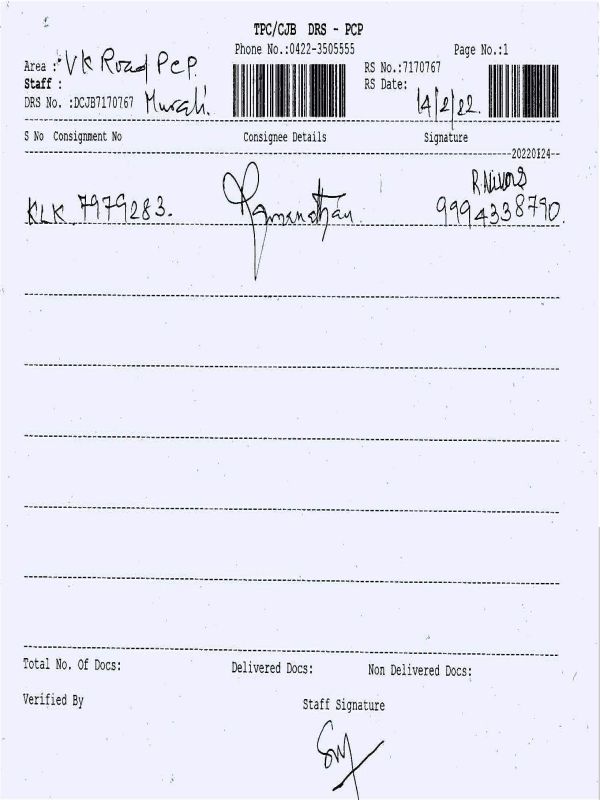 TPC/CJB DRS - PCP
Phone No.:0422-3505555 Page No.:1
Area : VK Road PCP. RS No.:7170767
Staff : RS Date: 14/2/22.
DRS No. :DCJB7170767 Murali.
S No Consignment No Consignee Details Signature
20220124
KLK 7979283. Ramanathan R.Nivas
9994338790.
Total No. Of Docs: Delivered Docs: Non Delivered Docs:
Verified By Staff Signature